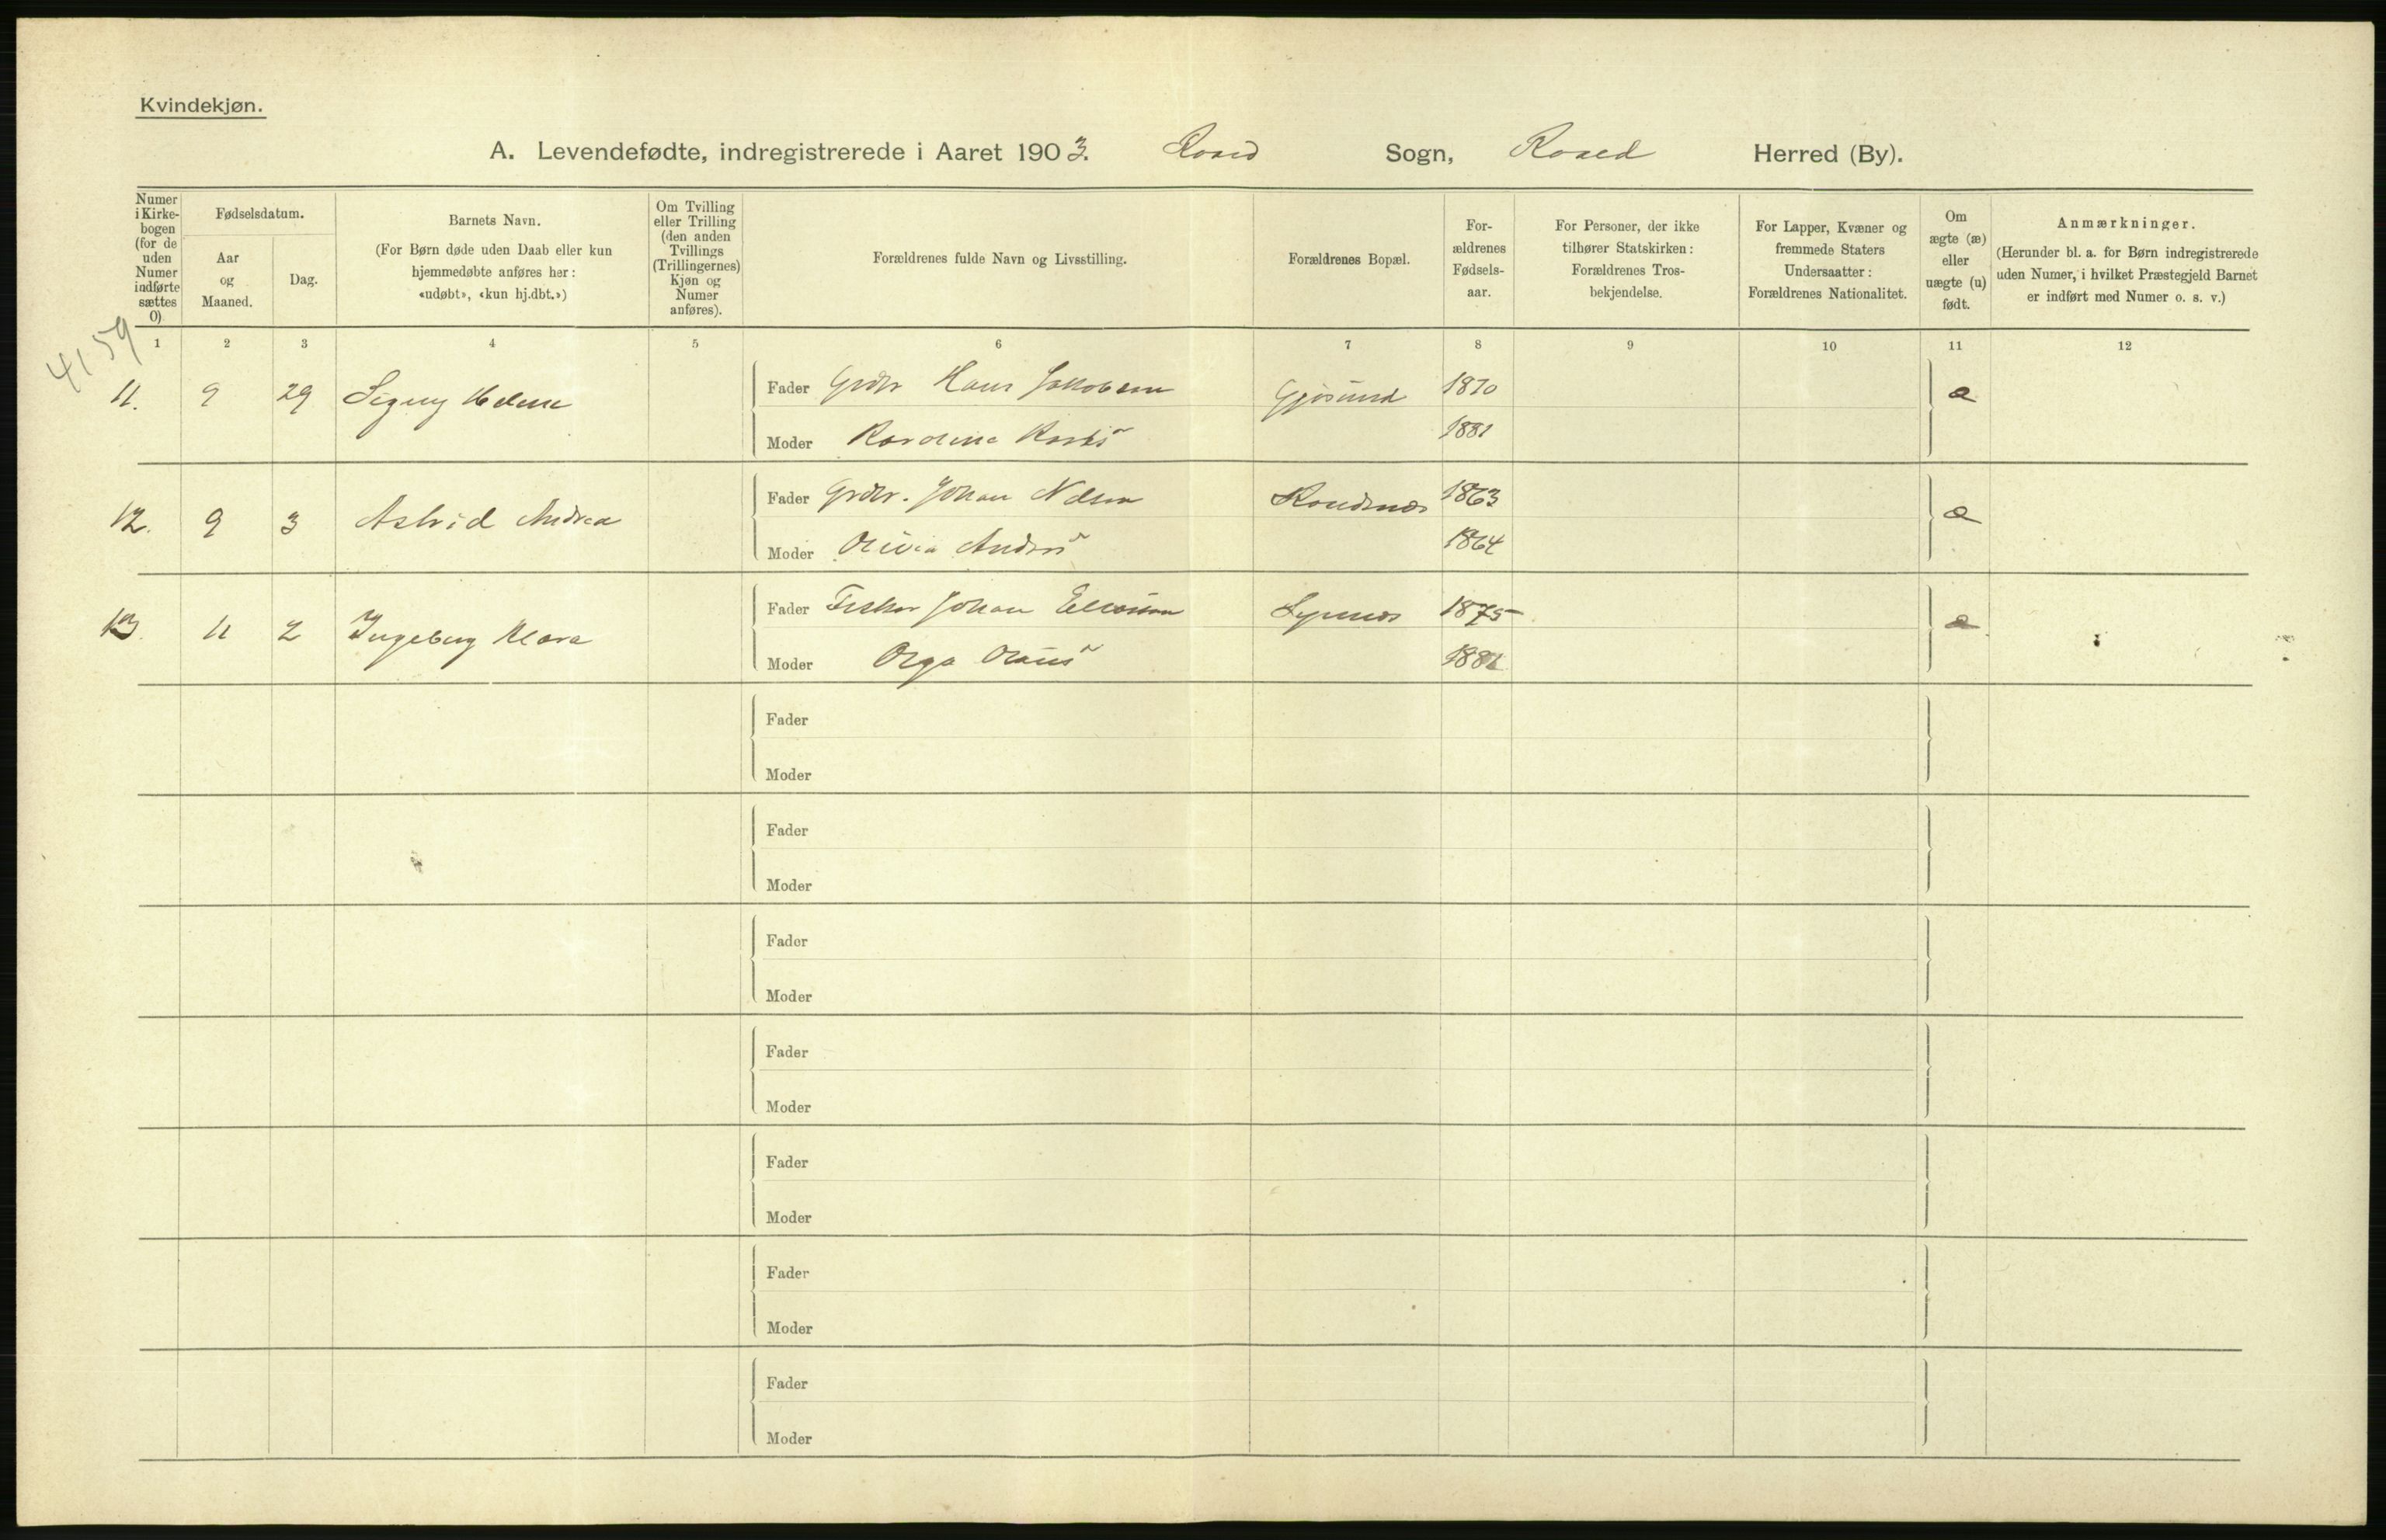 Kvindekjøn.
A. Levendefødte, indregistrerede i Aaret 1903. Sogn, Herred (By).
Numer i Kirke-bogen (for de uden Numer indførte sættes 0)
Fødselsdatum.
Aar og Maaned.
Dag.
Barnets Navn.
(For Børn døde uden Daab eller kun
hjemmedøbte anføres her:
«udøbt», «kun hj.dbt.»)
Om Tvilling
eller Trilling
(den anden
Tvillings
(Trillingernes)
Kjøn og
Numer
anføres).
Forældrenes fulde Navn og Livsstilling.
Forældrenes Bopæl.
For-
ældrenes
Fødsels-
aar.
For Personer, der ikke
tilhører Statskirken:
Forældrenes Tros-
bekjendelse.
For Lapper, Kvæner og
fremmede Staters
Undersaatter:
Forældrenes Nationalitet.
Om
ægte (æ)
eller
uægte (u)
født.
Anmærkninger.
(Herunder bl. a. for Børn indregistrerede
uden Numer, i hvilket Præstegjeld Barnet
er indført med Numer o. s. v.)
1 2 3 4 5 6 7 8 9 10 11 12
4159
11. 9 29 Signy Helene Fader Hans Jakobsen Gjøsund 1870 æ
Moder Karoline 1881
12. 9 3 Astrid Andrea Fader Johan Nelsen 1863 æ
Moder Olivia 1864
13. 11 2 Ingeborg Klara Fader Fisker Johan 1875 æ
Moder Olga
Fader
Moder
Fader
Moder
Fader
Moder
Fader
Moder
Fader
Moder
Fader
Moder
Fader
Moder